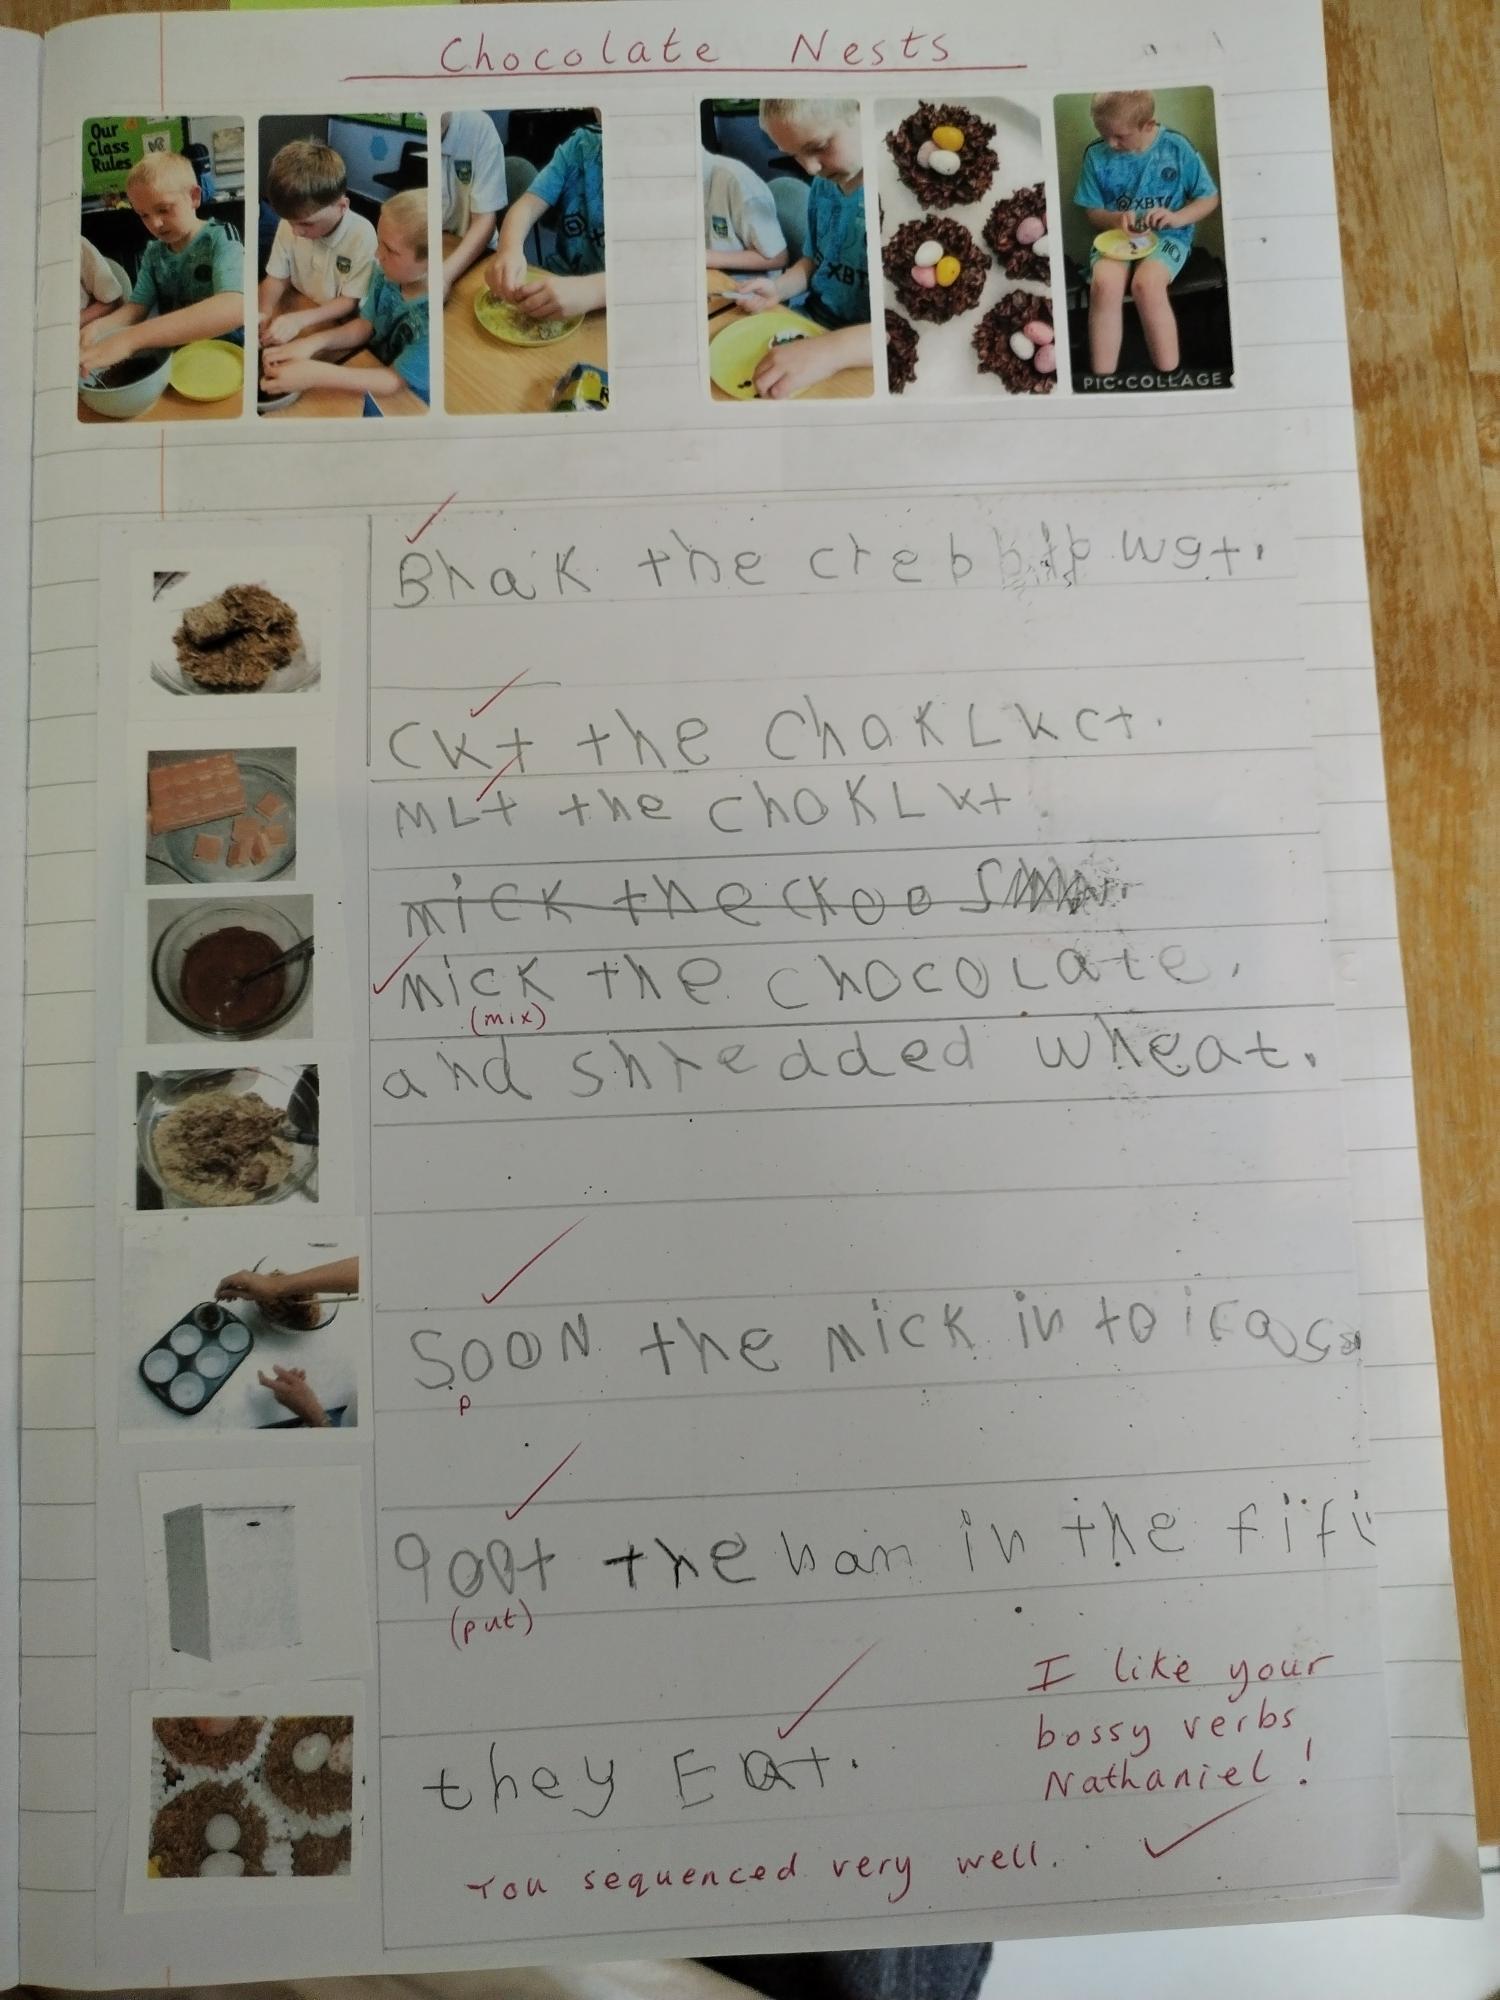 Chocolate Nests
Our
Class
Rules
XBT
XBT
PIC•COLLAGE
Bhak the creb wgt.
Ckt the ChaKLKct.
MLt the choKLKt
mick the
mick the chocolate.
(mix)
and shredded wheat.
SOON the mick in to
p
the ham in the fifi
(put)
I like your
bossy verbs
Nathaniel!
they Eat.
You sequenced very well.